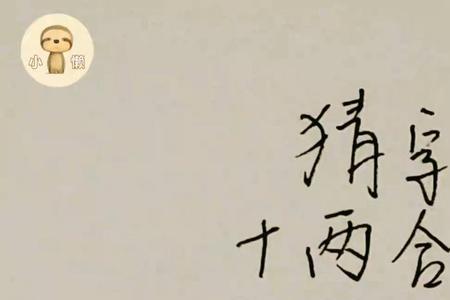 小懒
猜字
十两合